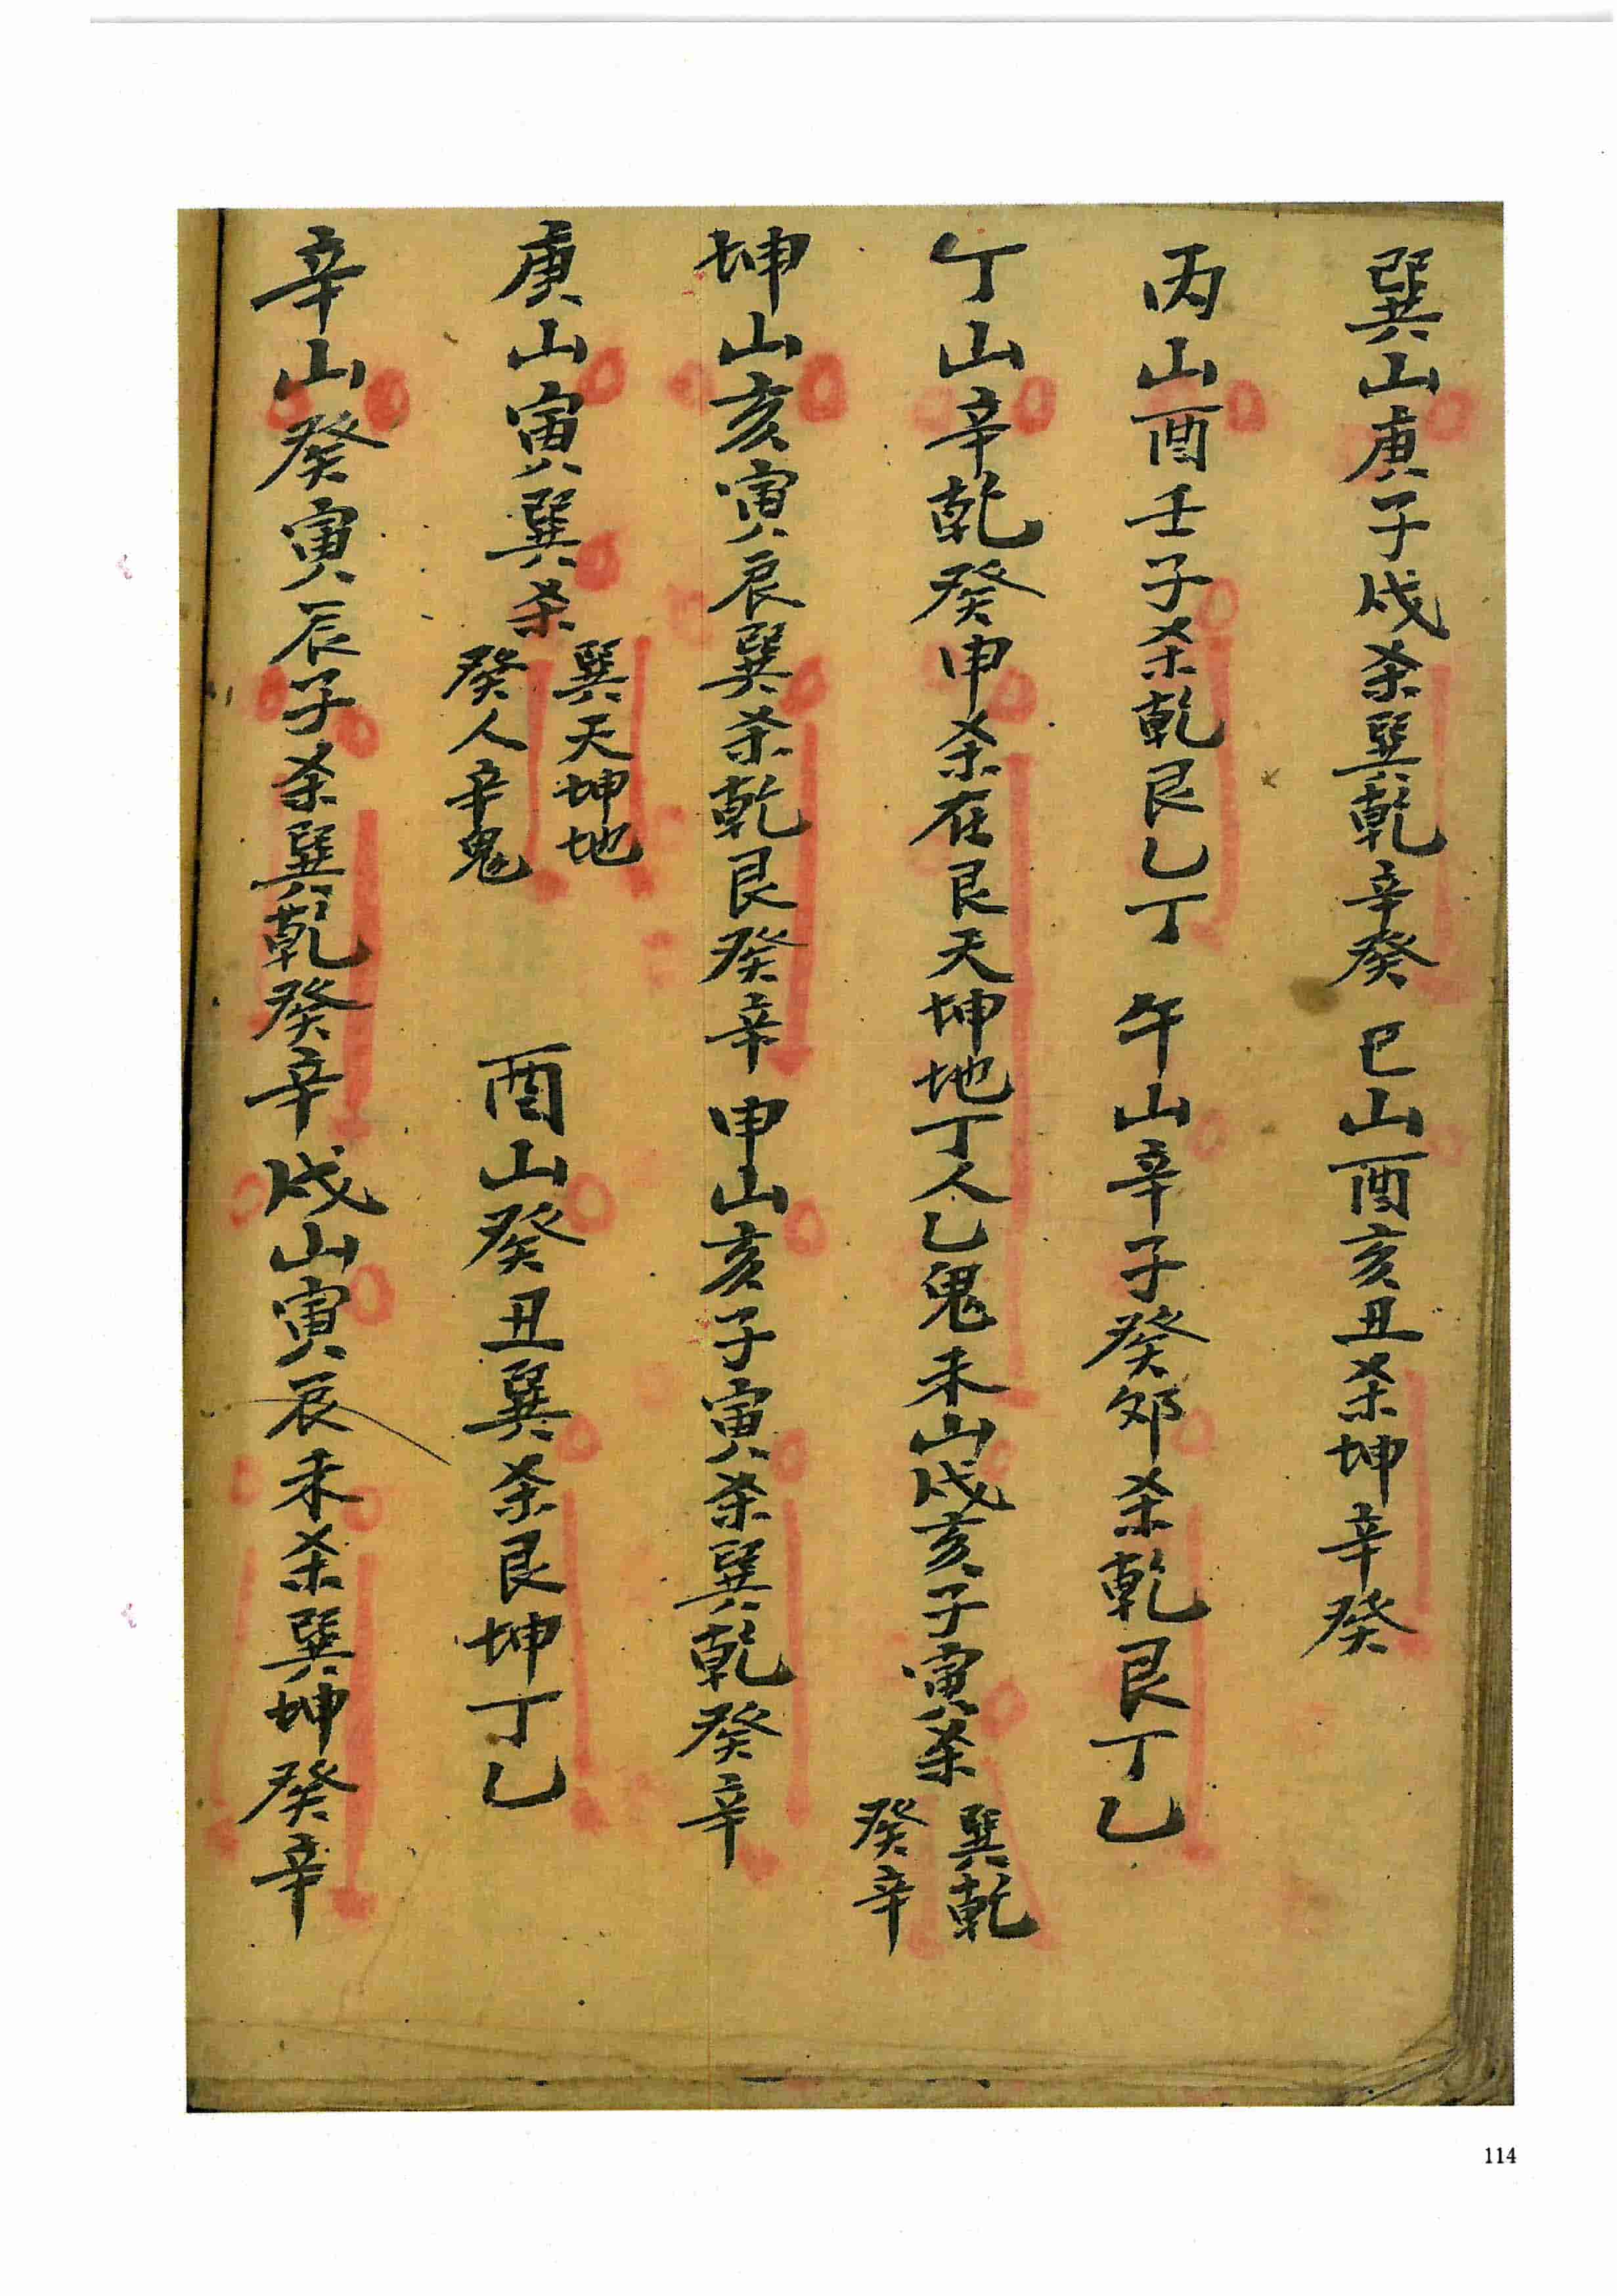 巽山庚子戌杀巽乾辛癸 巳山酉亥丑杀坤辛癸
丙山酉壬子杀乾艮乙丁 午山辛子癸夘杀乾艮丁乙
丁山辛乾癸申杀在艮天坤地丁人乙鬼未山戌亥子寅杀巽乾癸辛
坤山亥寅辰巽杀乾艮癸辛 申山亥子寅杀巽乾癸辛
庚山寅巽杀巽天坤地癸人辛鬼 酉山癸丑巽杀艮坤丁乙
辛山癸寅辰子杀巽乾癸辛 戌山寅辰未杀巽坤癸辛
114